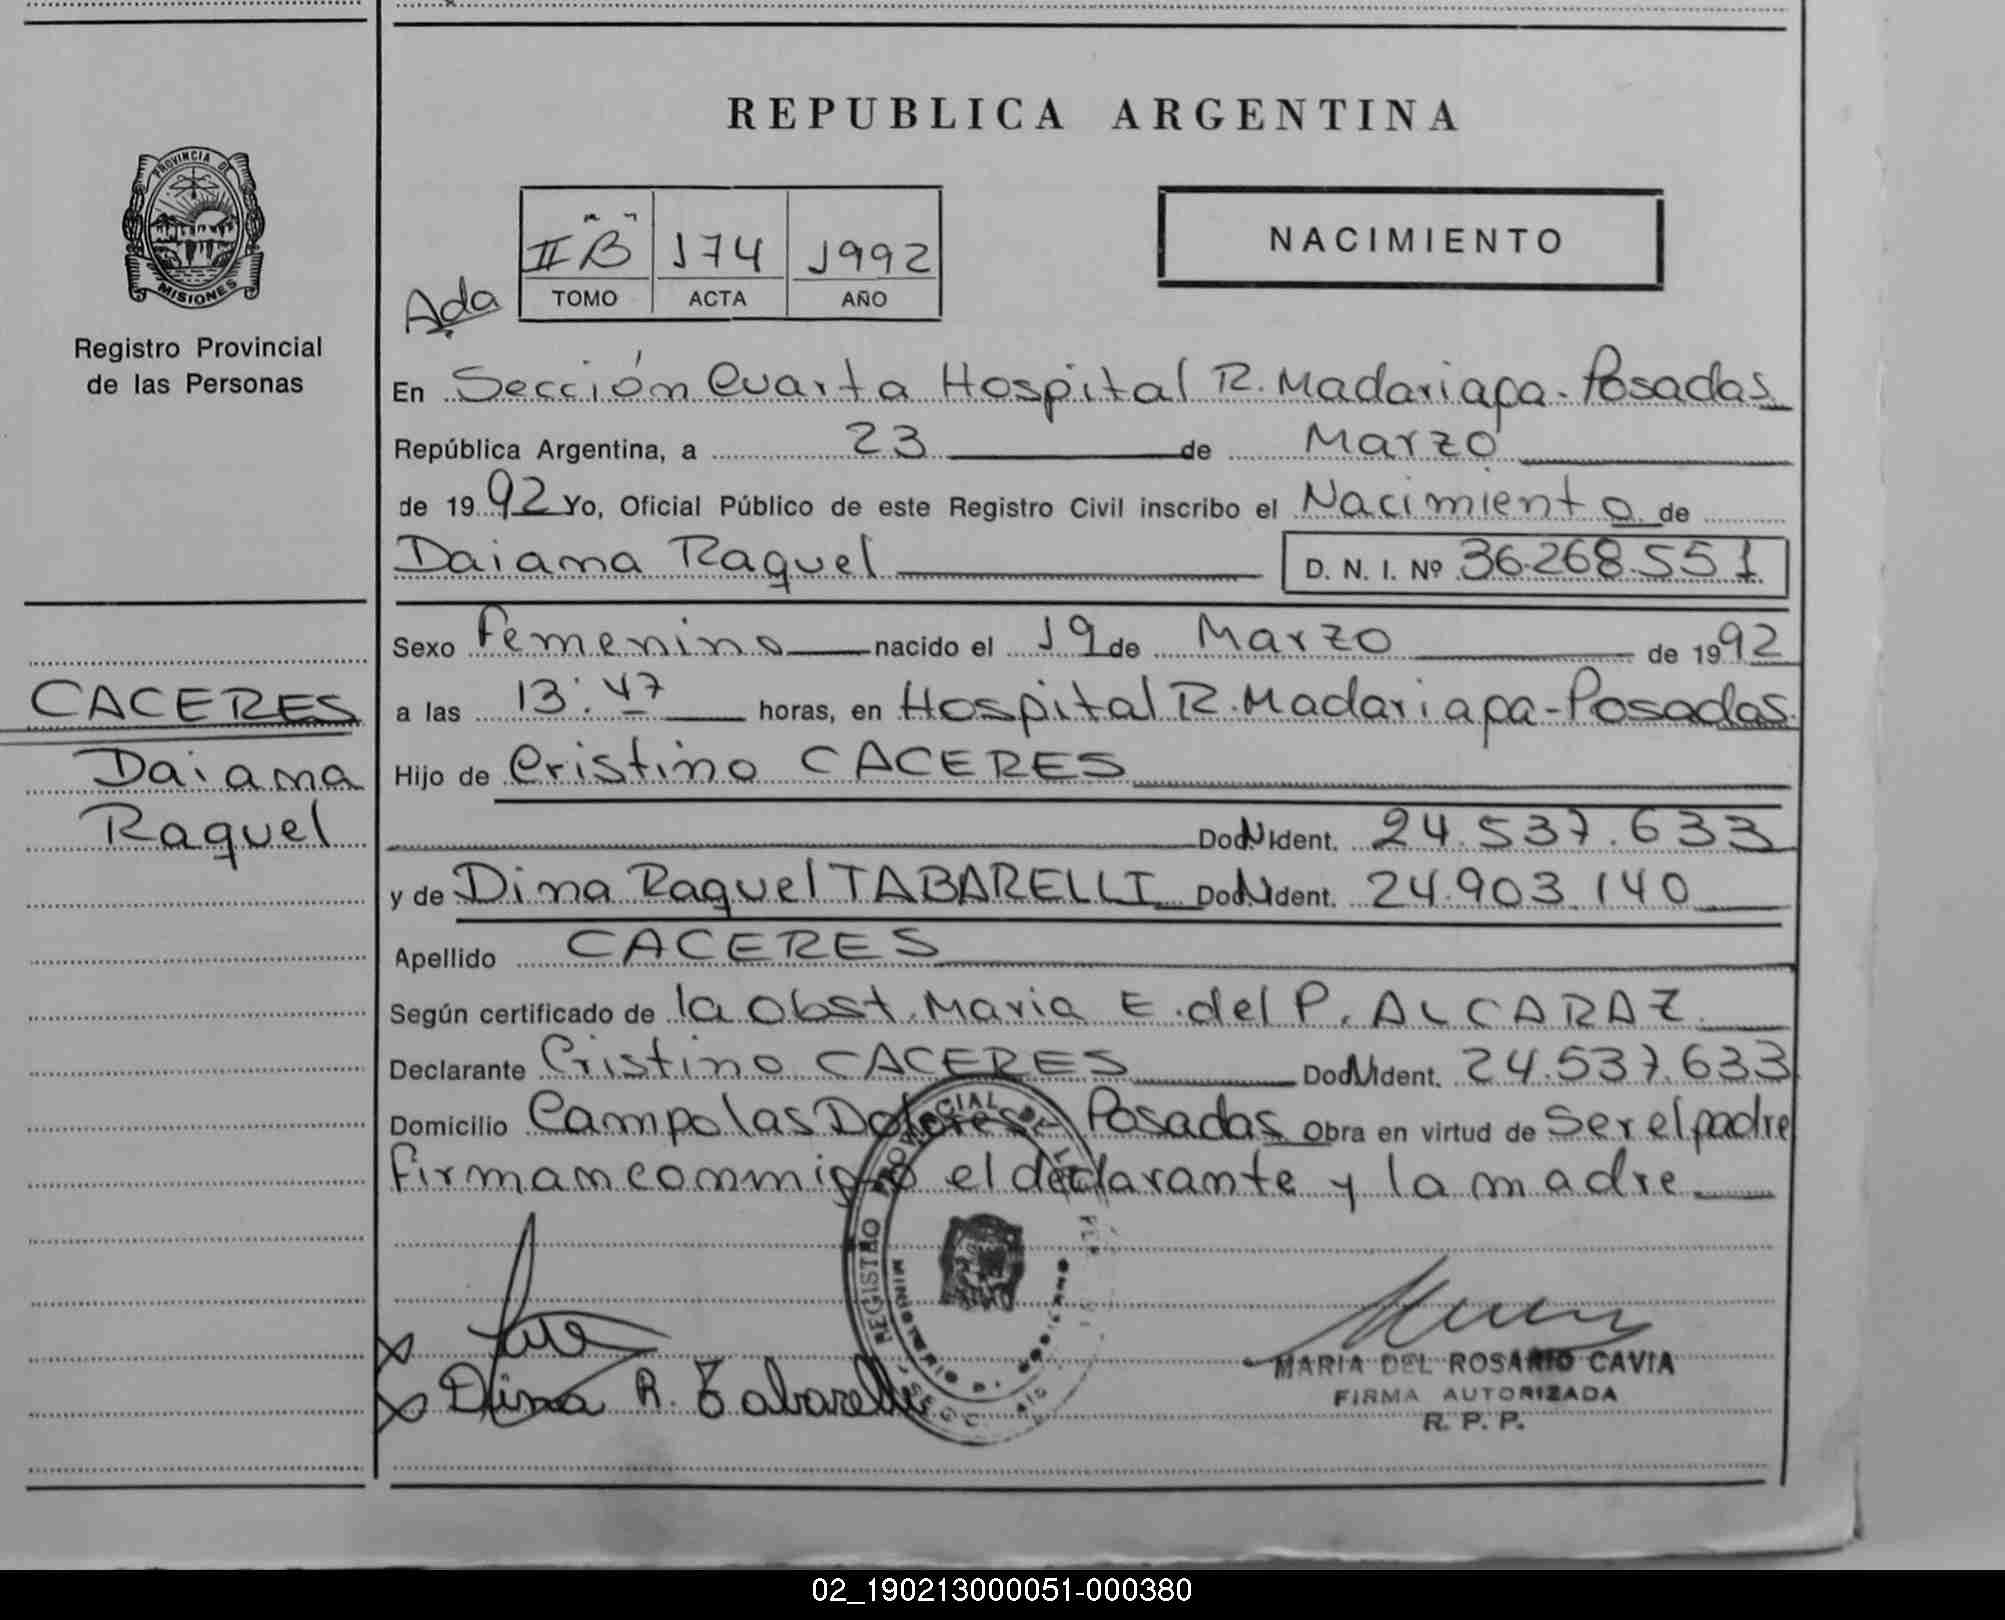 REPUBLICA ARGENTINA
PROVINCIA DE
MISIONES
Registro Provincial
de las Personas
II "B" 174 1992
TOMO ACTA AÑO
NACIMIENTO
Ada
En Sección Cuarta Hospital R. Madariaga - Posadas
República Argentina, a 23 de Marzo
de 1992 Yo, Oficial Público de este Registro Civil inscribo el Nacimiento de
Daiana Raquel D. N. I. Nº 36.268.551
Sexo Femenino nacido el 19 de Marzo de 1992
CACERES
Daiana
Raquel
a las 13:47 horas, en Hospital R. Madariaga - Posadas.
Hijo de Cristino CACERES
Doc. N Ident. 24.537.633
y de Dina Raquel TABARELLI Doc. N Ident. 24.903.140
Apellido CACERES
Según certificado de la Obst. Maria E. del P. ALCARAZ
Declarante Cristino CACERES Doc. N Ident. 24.537.633
Domicilio Campo las Dolores - Posadas Obra en virtud de ser el padre
firman conmigo el declarante y la madre
REGISTRO PROVINCIAL DE LAS
MINISTERIO DE GOBIERNO
Dina R. Tabarelli
MARIA DEL ROSARIO CAVIA
FIRMA AUTORIZADA
R. P. P.
02_190213000051-000380